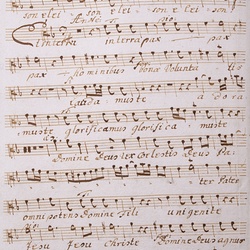 son elei son elei son elei son
Et in terra in terra pax pax
pax hominibus bonæ volunta
Laudamuste adora
muste glorificamus glorifica muste
Domine Deus rex cœlestis Deus Pa
ter Pater
omnipotens Domine Fili unigenite
Jesu Jesu Christe Domine Deus agnus